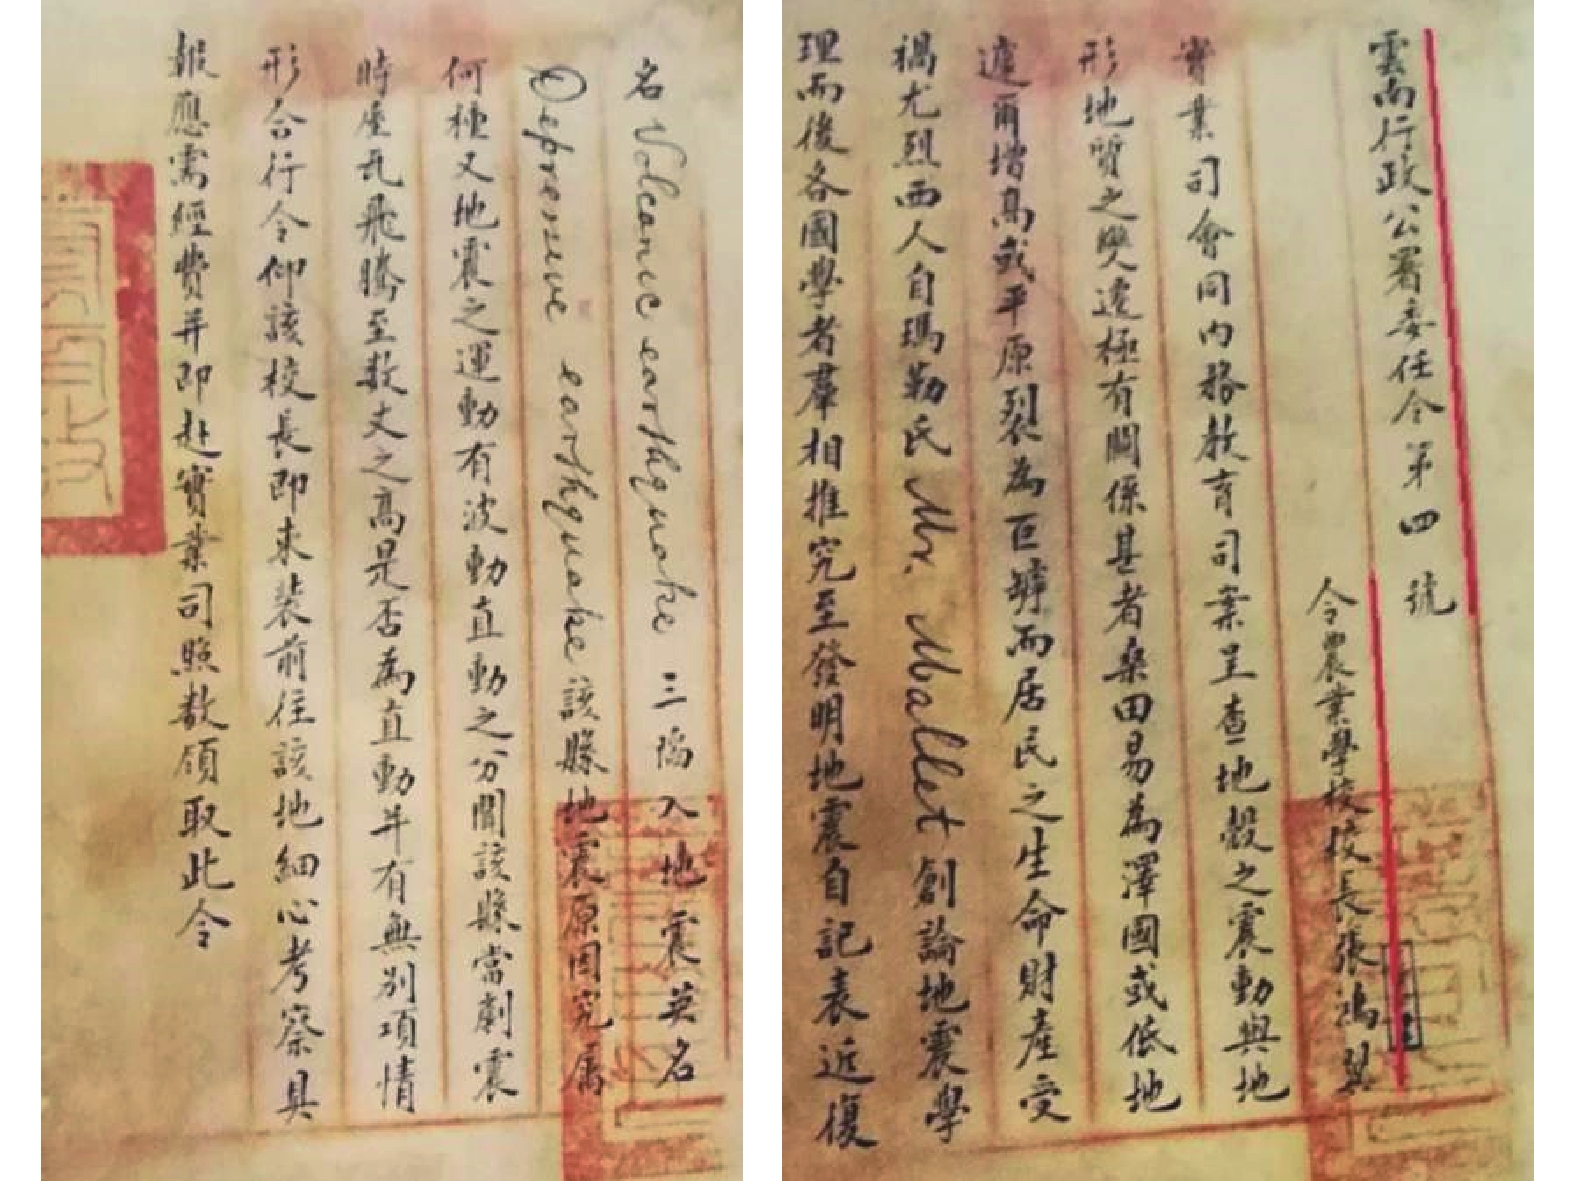 雲南行政公署委任令第四號
令農業學校校長張鴻翼
實業司會同內務教育司案呈查地殼之震動與地
形地質之變遷極有關係甚者桑田易為澤國或低地
遽爾增高或平原裂為巨罅而居民之生命財產受
禍尤烈西人自瑪勒氏 Mr. Mallet 創論地震學
理而後各國學者羣相推究至發明地震自記表近復
名 Volcanic earthquake 三陷入地震英名
Depressive earthquake 該縣地震原因究屬
何種又地震之運動有波動直動之分聞該縣當劇震
時屋瓦飛騰至數丈之高是否為直動并有無別項情
形合行令仰該校長即束裝前往該地細心考察具
報應需經費并即赴實業司照數領取此令